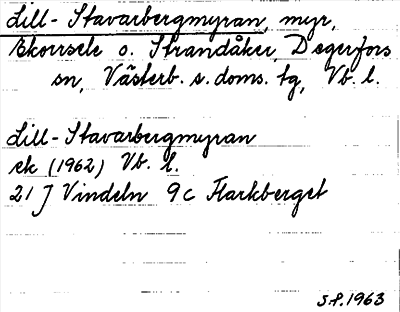 Lill-Stavarbergmyran, myr,
Ekorrsele o. Strandåker, Degerfors
sn, Västerb. s. doms. tg, Vb. l.
Lill-Stavarbergmyran
ek (1962) Vb. l.
21 J Vindeln 9c Flarkberget
S.P. 1963